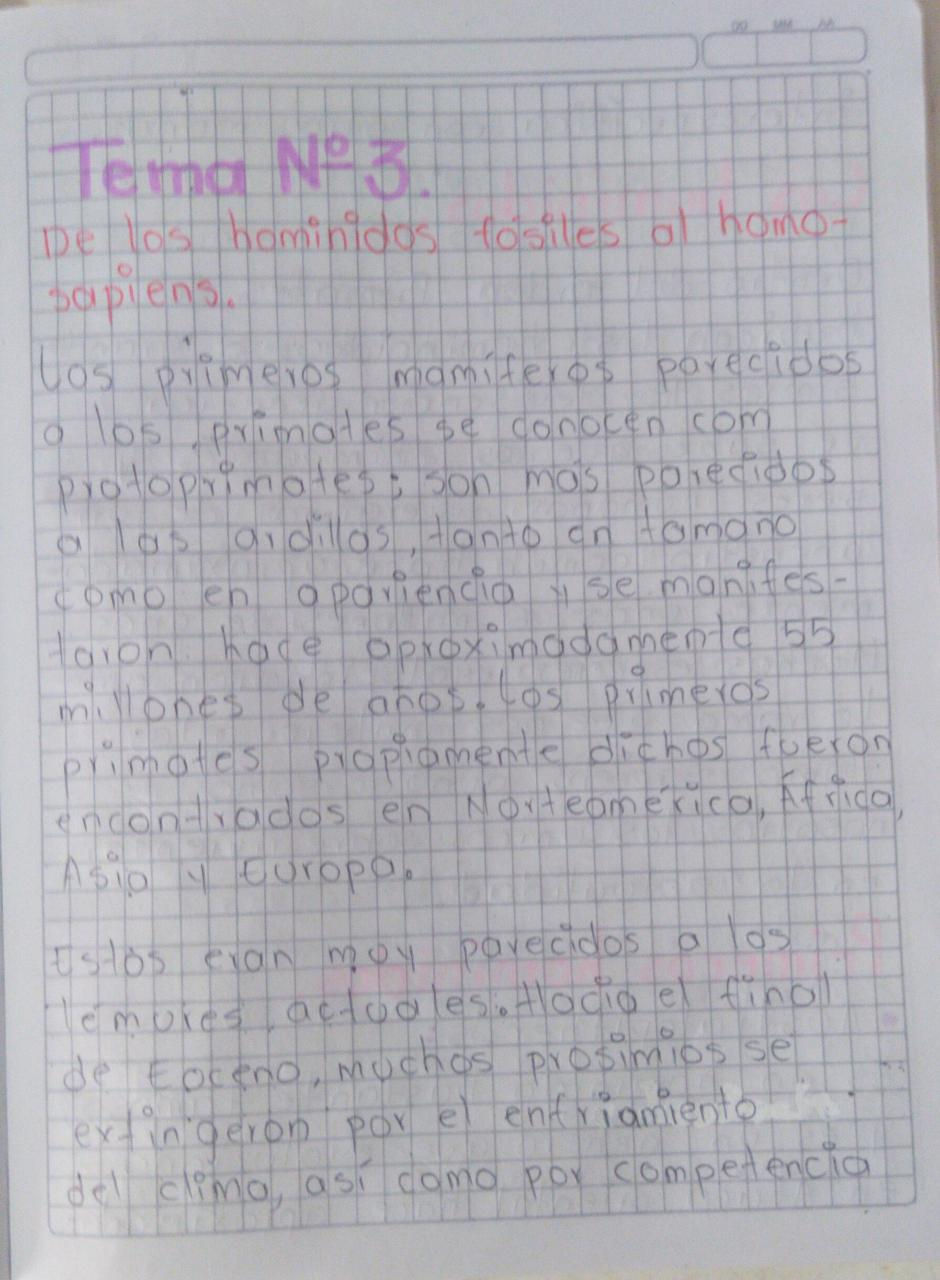 Tema Nº 3.
De los hominidos fósiles al homo-
sapiens.
Los primeros mamíferos parecidos
a los primates se conocen com
protoprimates; son mas parecidos
a las ardillas, tanto en tamano
como en apariencia y se manifes-
taron hace aproximadamente 55
millones de años. Los primeros
primates propiamente dichos fueron
encontrados en Norteamérica, África,
Asia y Europa.
Estos eran muy parecidos a los
lemures actuales. Hacia el final
de Eoceno, muchos prosimios se
extingeron por el enfriamiento
del clima, así como por competencia